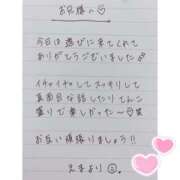 お兄様へ♡
今日は遊びに来てくれて
ありがとうございました
イチャイチャしてスッキリして
真面目な話したりてんこ
盛りで楽しかったー
お互い頑張りましょう!!
より